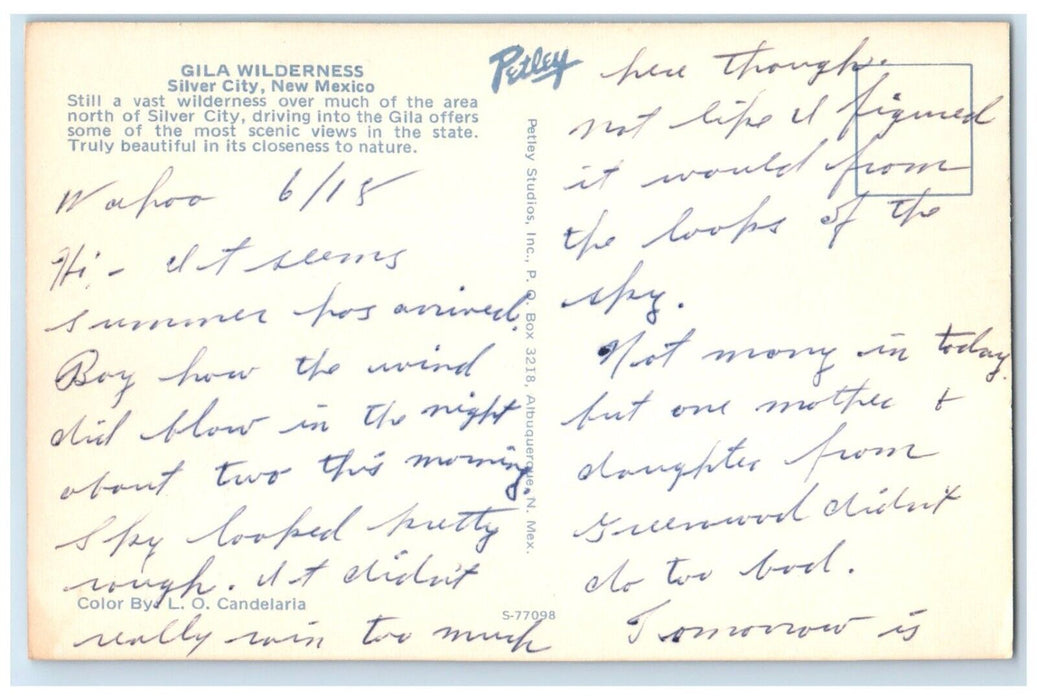 GILA WILDERNESS
Silver City, New Mexico
Still a vast wilderness over much of the area
north of Silver City, driving into the Gila offers
some of the most scenic views in the state.
Truly beautiful in its closeness to nature.
Wahoo 6/18
Hi - It seems
summer has arrived.
Boy how the wind
did blow in the night
about two this morning.
Sky looked pretty
rough. It didn't
Color By: L. O. Candelaria
really rain too much
Petley
Petley Studios, Inc., P. O. Box 3218, Albuquerque, N. Mex.
S-77098
here though.
not like I figured
it would from
the looks of the
sky.
Not many in today
but one mother &
daughter from
Greenwood didn't
do too bad.
Tomorrow is